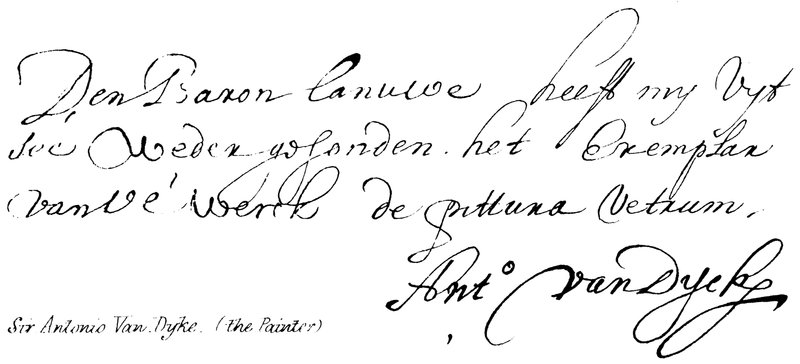 Den Baron Canuwe heeft my Vyt
See Weder gesonden. het Exemplar
van Ue' Werck de pittura Vetrum.
Antº van Dyck
Sir Antonio Van.Dyke. (the Painter)